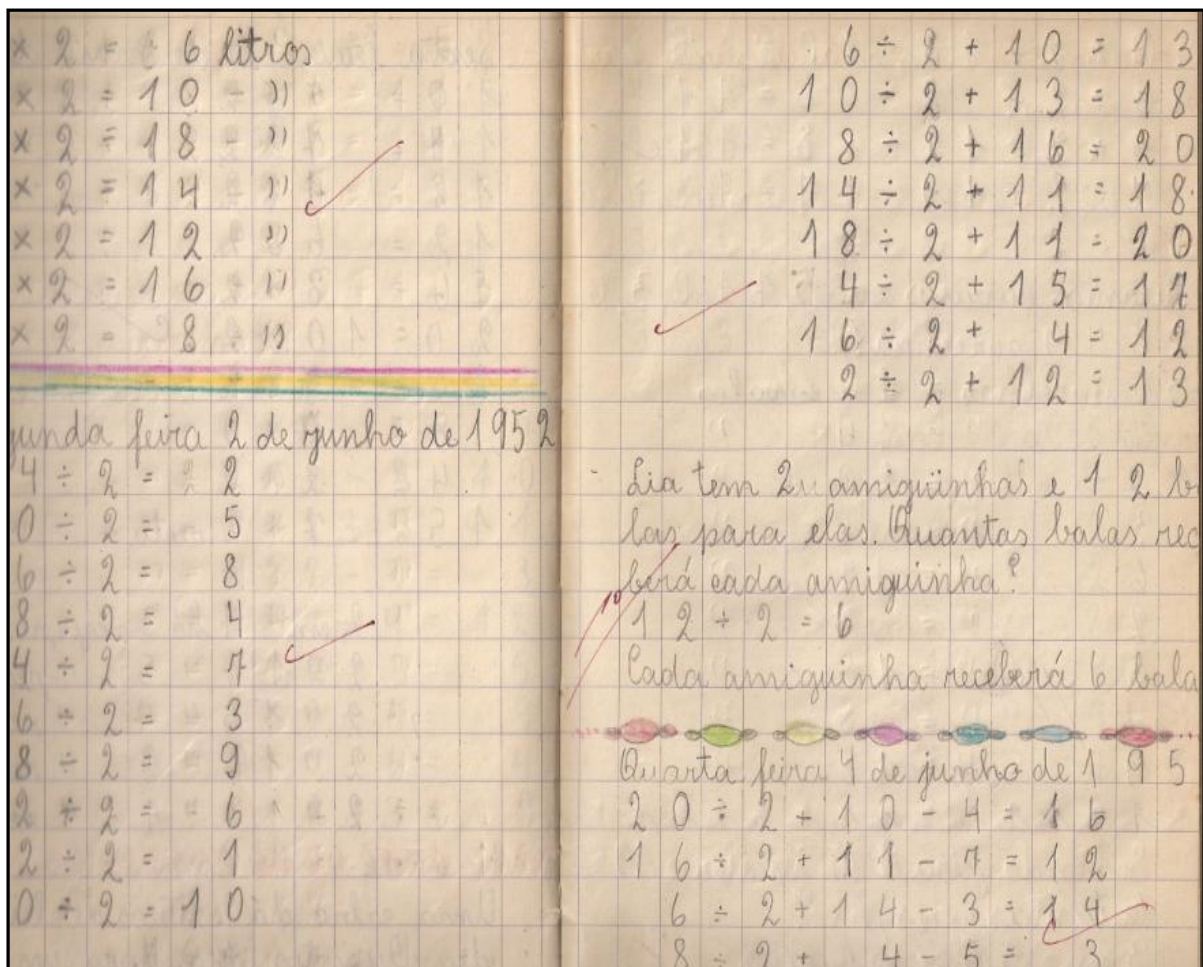 × 2 = 6 litros
× 2 = 10 - "
× 2 = 18 - "
× 2 = 14 "
× 2 = 12 "
× 2 = 16 "
× 2 = 8 - "
gunda feira 2 de junho de 1952
4 ÷ 2 = 2
0 ÷ 2 = 5
6 ÷ 2 = 8
8 ÷ 2 = 4
4 ÷ 2 = 7
6 ÷ 2 = 3
8 ÷ 2 = 9
2 ÷ 2 = 6
2 ÷ 2 = 1
0 ÷ 2 = 10
6 ÷ 2 + 10 = 13
10 ÷ 2 + 13 = 18
8 ÷ 2 + 16 = 20
14 ÷ 2 + 11 = 18
18 ÷ 2 + 11 = 20
4 ÷ 2 + 15 = 17
16 ÷ 2 + 4 = 12
2 ÷ 2 + 12 = 13
Lia tem 2 amigüinhas e 12 b
las para elas. Quantas balas rec
berá cada amiguinha?
10
12 ÷ 2 = 6
Cada amiguinha receberá 6 bala
Quarta feira 4 de junho de 195
20 ÷ 2 + 10 - 4 = 16
16 ÷ 2 + 11 - 7 = 12
6 ÷ 2 + 14 - 3 = 14
8 ÷ 2 + 4 - 5 = 3